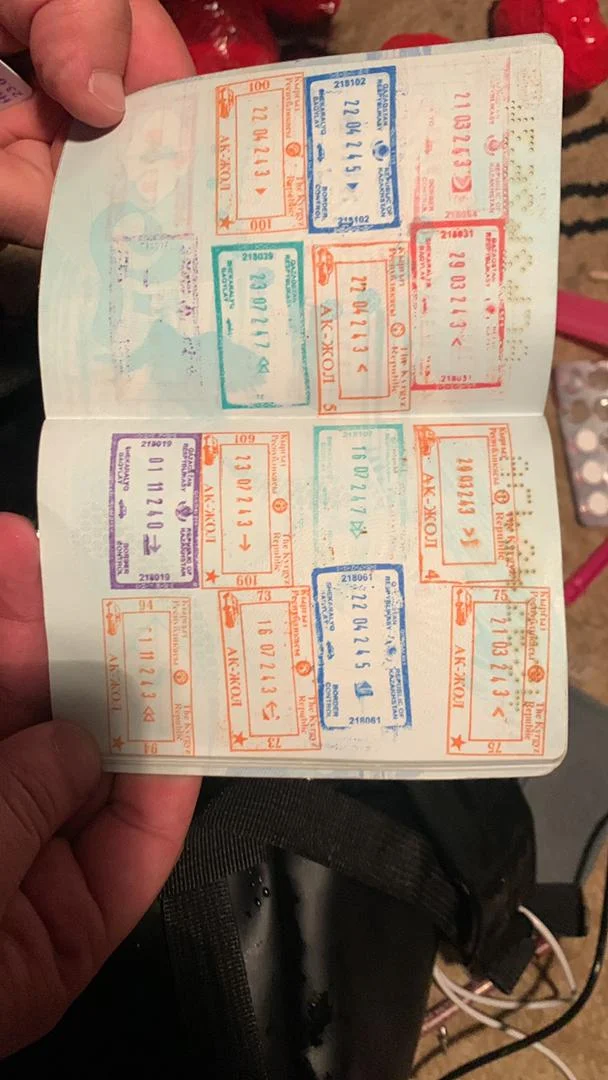 21 03 243
REPUBLIC OF
KAZAKHSTAN
BORDER
CONTROL
218031
QAZAQSTAN
29 03 243 <
SHEKARALYQ
BAQYLAÝ
218031
Кыргыз
Республикасы
The Kyrgyz
Republic
29 03 243
АК-ЖОЛ
4
75
Кыргыз
Республикасы
The Kyrgyz
Republic
21 03 243 <
АК-ЖОЛ
75
218102
QAZAQSTAN
RESPÝBLIKASY
REPUBLIC OF
KAZAKHSTAN
22 04 245
SHEKARALYQ
BAQYLAÝ
BORDER
CONTROL
218102
Кыргыз
Республикасы
The Kyrgyz
Republic
22 04 243 <
АК-ЖОЛ
5
16 07 247
218061
RESPÝBLIKASY
REPUBLIC OF
KAZAKHSTAN
22 04 245
SHEKARALYQ
BAQYLAÝ
BORDER
CONTROL
218061
100
Кыргыз
Республикасы
The Kyrgyz
Republic
22 04 243
АК-ЖОЛ
100
218039
QAZAQSTAN
RESPÝBLIKASY
23 07 247
SHEKARALYQ
BAQYLAÝ
109
Кыргыз
Республикасы
The Kyrgyz
Republic
23 07 243 →
АК-ЖОЛ
109
73
Кыргыз
Республикасы
The Kyrgyz
Republic
16 07 243
АК-ЖОЛ
73
218019
QAZAQSTAN
RESPÝBLIKASY
REPUBLIC OF
KAZAKHSTAN
01 11 240
SHEKARALYQ
BAQYLAÝ
BORDER
CONTROL
218019
94
Кыргыз
Республикасы
The Kyrgyz
Republic
11 243
АК-ЖОЛ
94